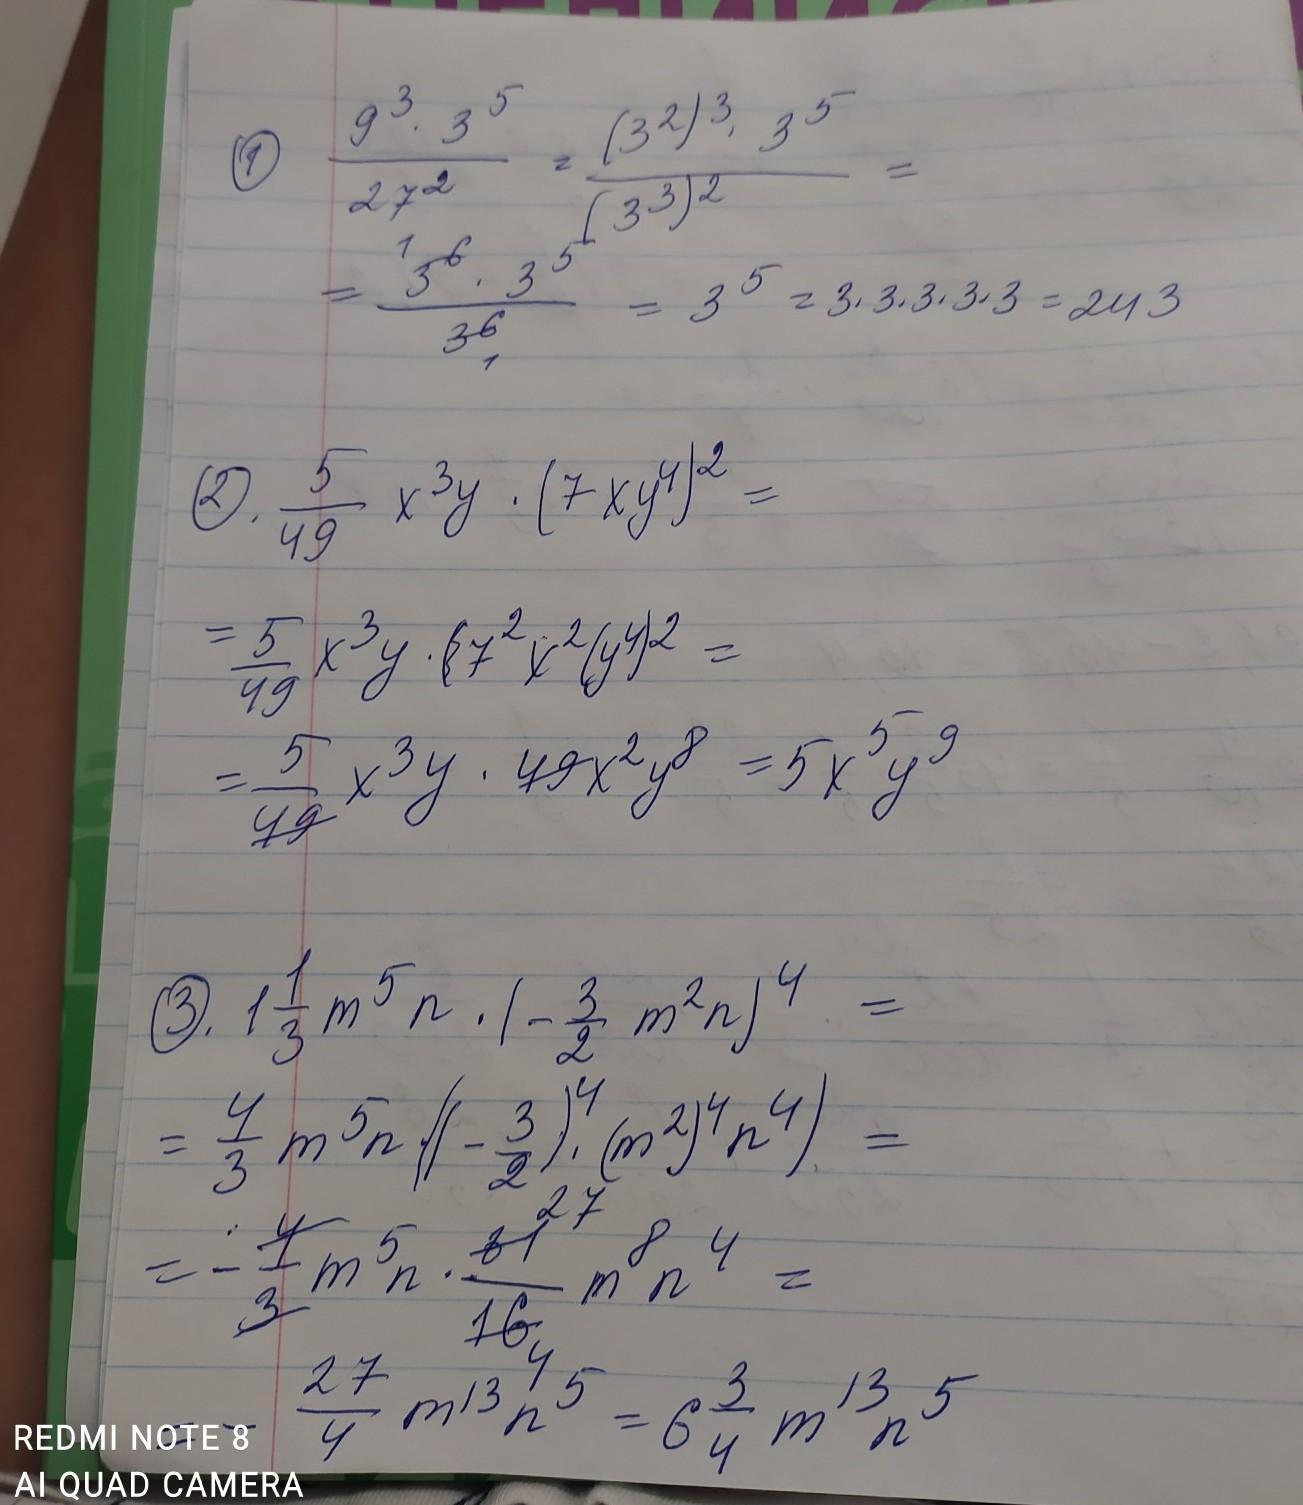 ① 9³ · 3⁵ / 27² = (3²)³ · 3⁵ / (3³)² =
= 3⁶ · 3⁵ / 3⁶ = 3⁵ = 3·3·3·3·3 = 243
②. 5/49 x³y · (7xy⁴)² =
= 5/49 x³y · (7²x²(y⁴)² =
= 5/49 x³y · 49x²y⁸ = 5x⁵y⁹
③. 1 1/3 m⁵n · (-3/2 m²n)⁴ =
= 4/3 m⁵n · ((-3/2)⁴ · (m²)⁴n⁴) =
= - 4/3 m⁵n · 81/16 m⁸n⁴ =
= - 27/4 m¹³n⁵ = 6 3/4 m¹³n⁵
REDMI NOTE 8
AI QUAD CAMERA